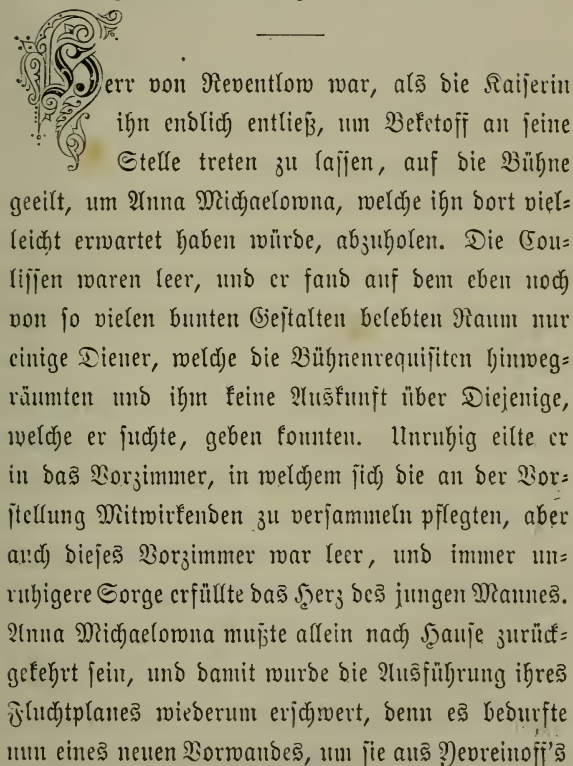 Herr von Reventlow war, als die Kaiserin
ihn endlich entließ, um Befctoff an seine
Stelle treten zu lassen, auf die Bühne
geeilt, um Anna Michaelowna, welche ihn dort viel=
leicht erwartet haben würde, abzuholen. Die Cou=
lissen waren leer, und er fand auf dem eben noch
von so vielen bunten Gestalten belebten Raum nur
einige Diener, welche die Bühnenrequisiten hinweg=
räumten und ihm keine Auskunft über Diejenige,
welche er suchte, geben konnten. Unruhig eilte er
in das Vorzimmer, in welchem sich die an der Vor=
stellung Mitwirkenden zu versammeln pflegten, aber
auch dieses Vorzimmer war leer, und immer un=
ruhigere Sorge erfüllte das Herz des jungen Mannes.
Anna Michaelowna mußte allein nach Hause zurück=
gekehrt sein, und damit wurde die Ausführung ihres
Fluchtplanes wiederum erschwert, denn es bedurfte
nun eines neuen Vorwandes, um sie aus Yevreinoff's